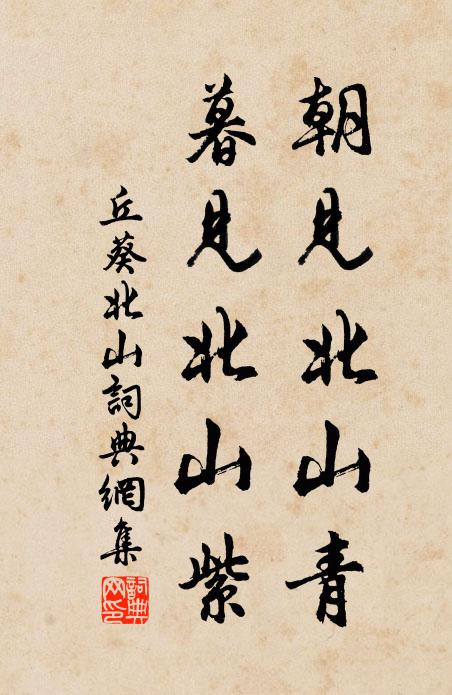 朝見北山青
暮見北山紫
丘葵北山詞典網集
詞典網印